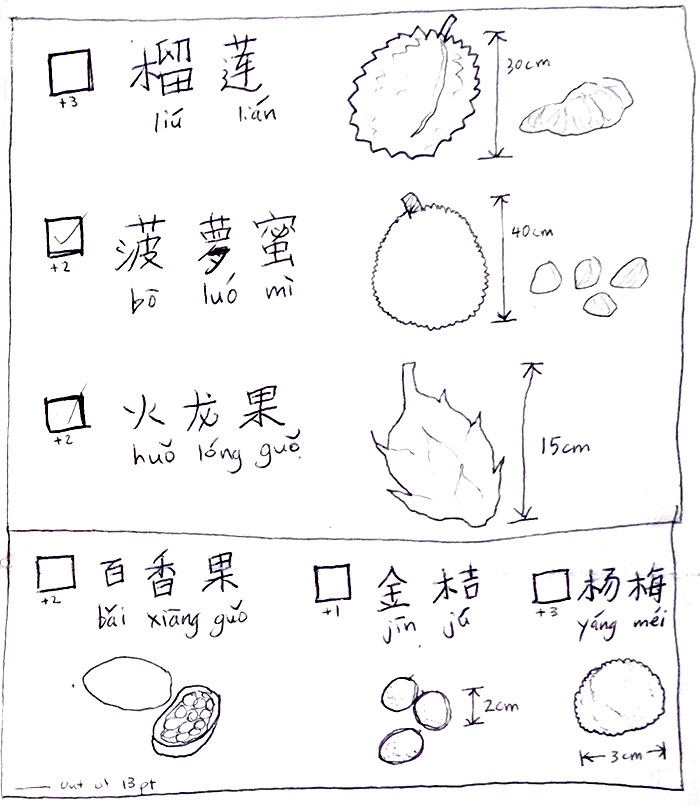 榴莲
+3
liú lián
30cm
菠萝蜜
+2
bō luó mì
40cm
火龙果
+2
huǒ lóng guǒ
15cm
百香果
+2
bǎi xiāng guǒ
金桔
+1
jīn jú
2cm
杨梅
+3
yáng méi
3cm
out of 13pt